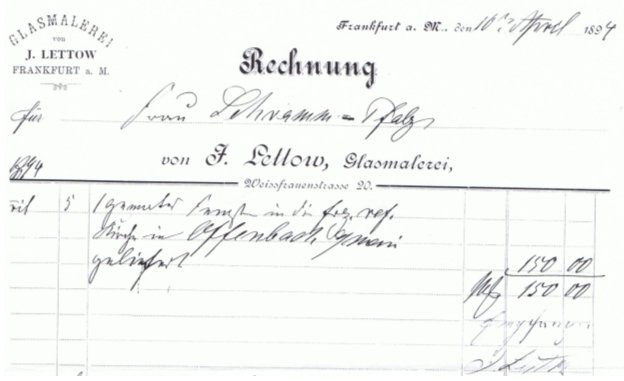 GLASMALEREI
von
J. LETTOW
FRANKFURT a. M.
Frankfurt a. M., den 10. April 1894
Rechnung
für Frau Schramm-Pfalz
1894
von J. Lettow, Glasmalerei,
Weissfrauenstrasse 20.
5 1 gemaltes Fenster in die frz. ref.
Kirche in Offenbach
geliefert
150 00
Mk 150 00
Empfangen
J. Lettow